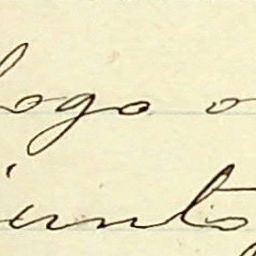 logo o
junto